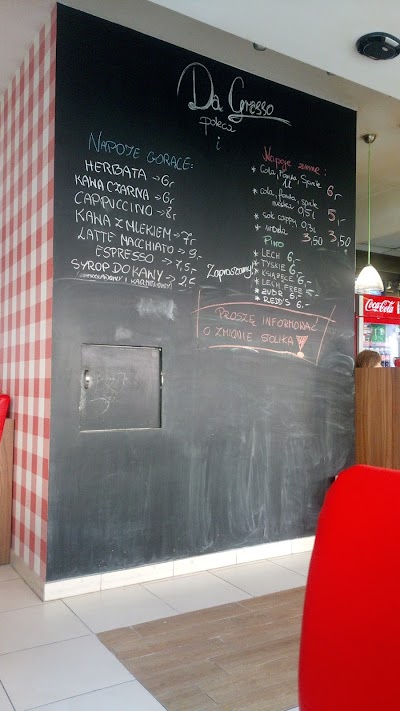 Da Grasso
poleca
i
NAPOJE GORĄCE:
HERBATA → 6,-
KAWA CZARNA → 6,-
CAPPUCCINO → 8,-
KAWA Z MLEKIEM → 7,-
LATTE MACCHIATO → 9,-
ESPRESSO → 7,5,-
SYROP DO KAWY → 2 zł
Zapraszamy
Napoje zimne:
* Cola, Fanta, Sprite 1L 6,-
* cola, fanta, sprite
0,5L 5,-
* sok cappy 0,3L 3,50
* woda 3,50
PIWO
* LECH 6,-
* TYSKIE 6,-
* KSIĄŻĘCE 6,-
* LECH FREE 5,-
* ŻUBR 6,-
* REDD'S 6,-
PROSZĘ INFORMOWAĆ
O ZMIONIE SOLIKA!
Coca-Cola